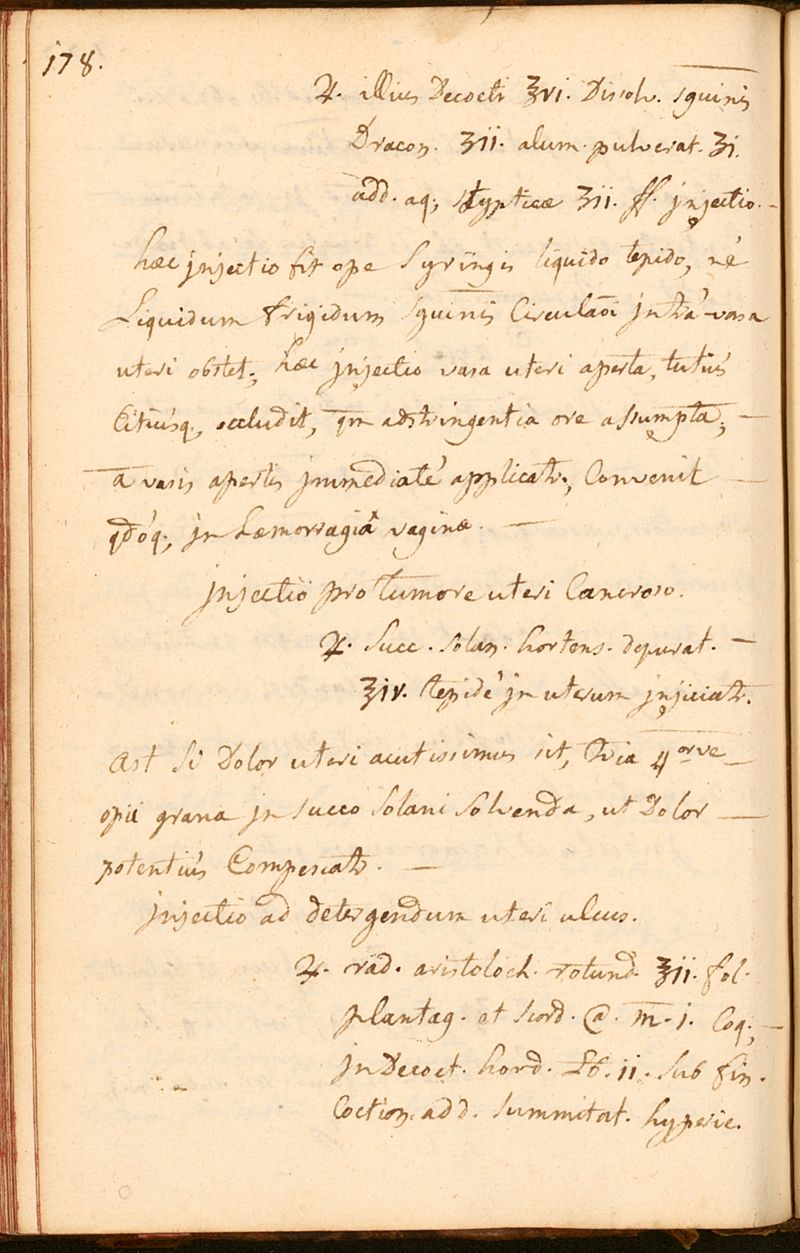 178.
♃. illius Decocti ℥vi. Dissolv. sguinis
Dracon. ʒii. alum. pulverat. ʒi.
add. aq; stypticæ ℥ii. ff. jnjectio. -
hæc jnjectio fit ope Syringis liquido tepido, nè
Liquidum frigidum sguinis Circulaõi jntrà vasa
uteri obstet; hæc jnjectio vasa uteri aperta, tutiùs
Citiùsq; occludit, qm adstringentia ore assumpta; —
a vasis apertis jmmediatè applicatr; Convenit —
qdóq; jn hæmorragiâ vaginæ. —
jnjectio pro tumore uteri Cancroso.
♃. Succ. Solan. hortens. depurat. —
℥iv. tepidè jn uterum jnjiciatr.
Ast Si Dolor uteri acutissimus sit, tria 4orve —
opii grana jn succo Solani Solvenda, ut Dolor —
potentiùs Compescatr. —
jnjectio ad detergendum uteri ulcus.
♃. rad. aristoloch. rotund. ℥ii. fol.
plantag. et scord. @. m. j. Coq; —
jn Decoct. hord. ℔. ii. Sub fin.
Coction. add. Summitat. hyperic.